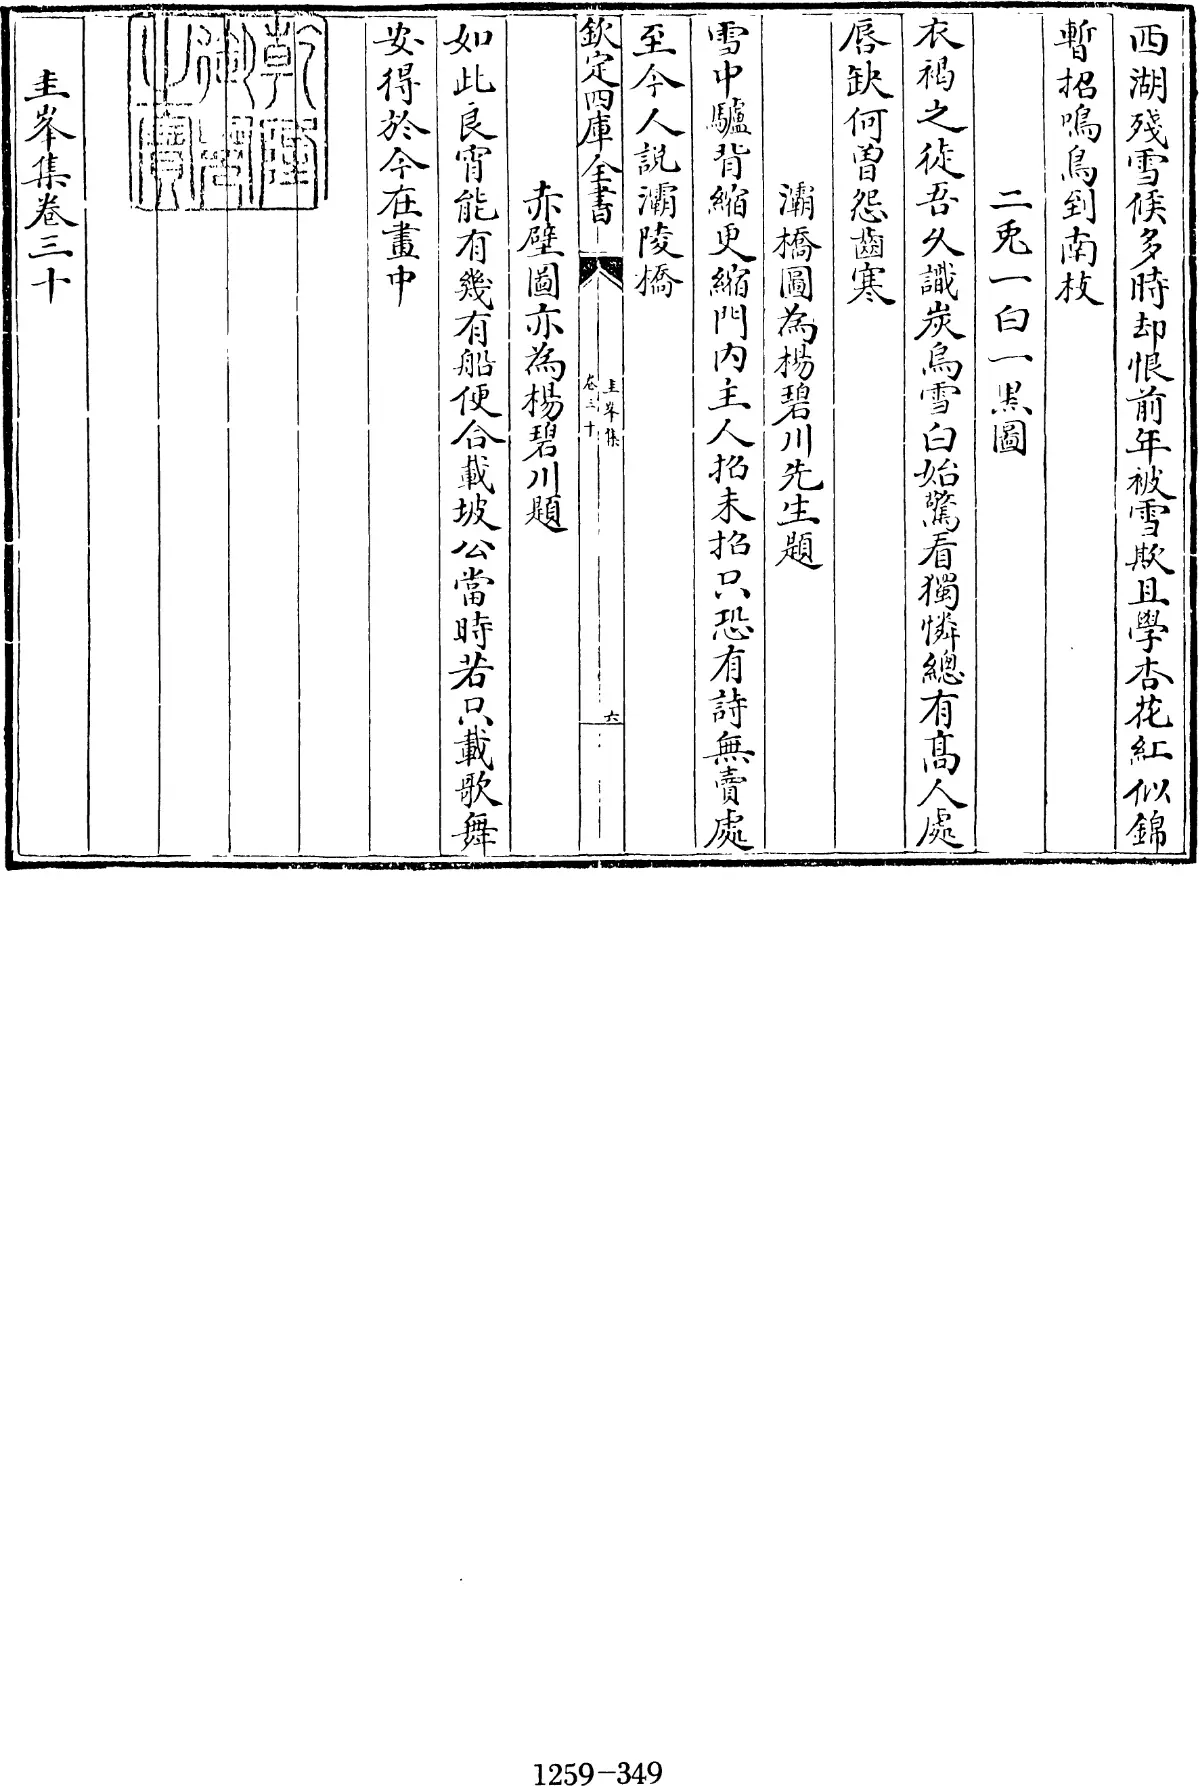 西湖殘雪候多時却恨前年被雪欺且學杏花紅似錦
暫招鳴鳥到南枝
二兎一白一黒圖
衣褐之徒吾久識炭烏雪白始驚看獨憐總有髙人處
唇缺何曽怨齒寒
灞橋圖為楊碧川先生題
雪中驢背縮更縮門内主人招未招只恐有詩無賣處
至今人説灞陵橋
欽定四庫全書
圭峯集
卷三十
六
赤壁圖亦為楊碧川題
如此良宵能有幾有船便合載坡公當時若只載歌舞
安得於今在畫中
乾隆
御覽
之寶
圭峯集卷三十
1259-349